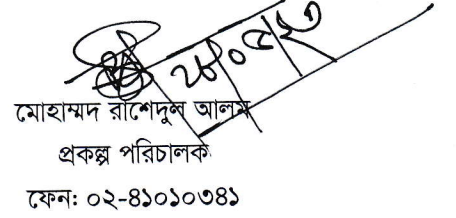 মোহাম্মদ রাশেদুল আলম
প্রকল্প পরিচালক
ফেন: ০২-৪১০১০৩৪১